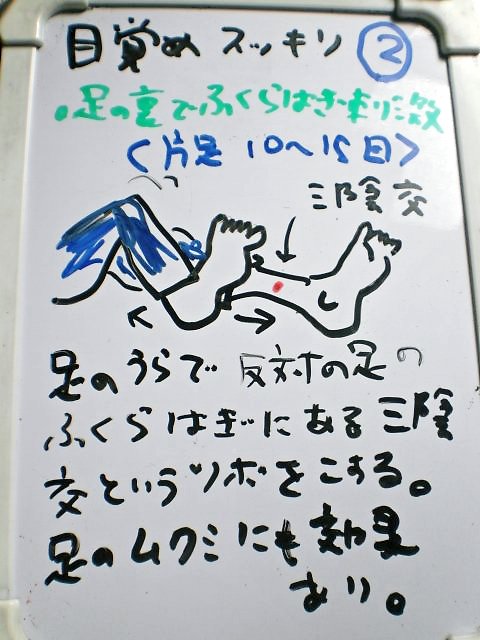 目覚め スッキリ ②
。足の裏でふくらはぎ刺激
〈片足 10〜15回〉
三陰交
足のうらで 反対の足の
ふくらはぎにある三陰
交というツボをこする。
足のムクミにも効果
あり。